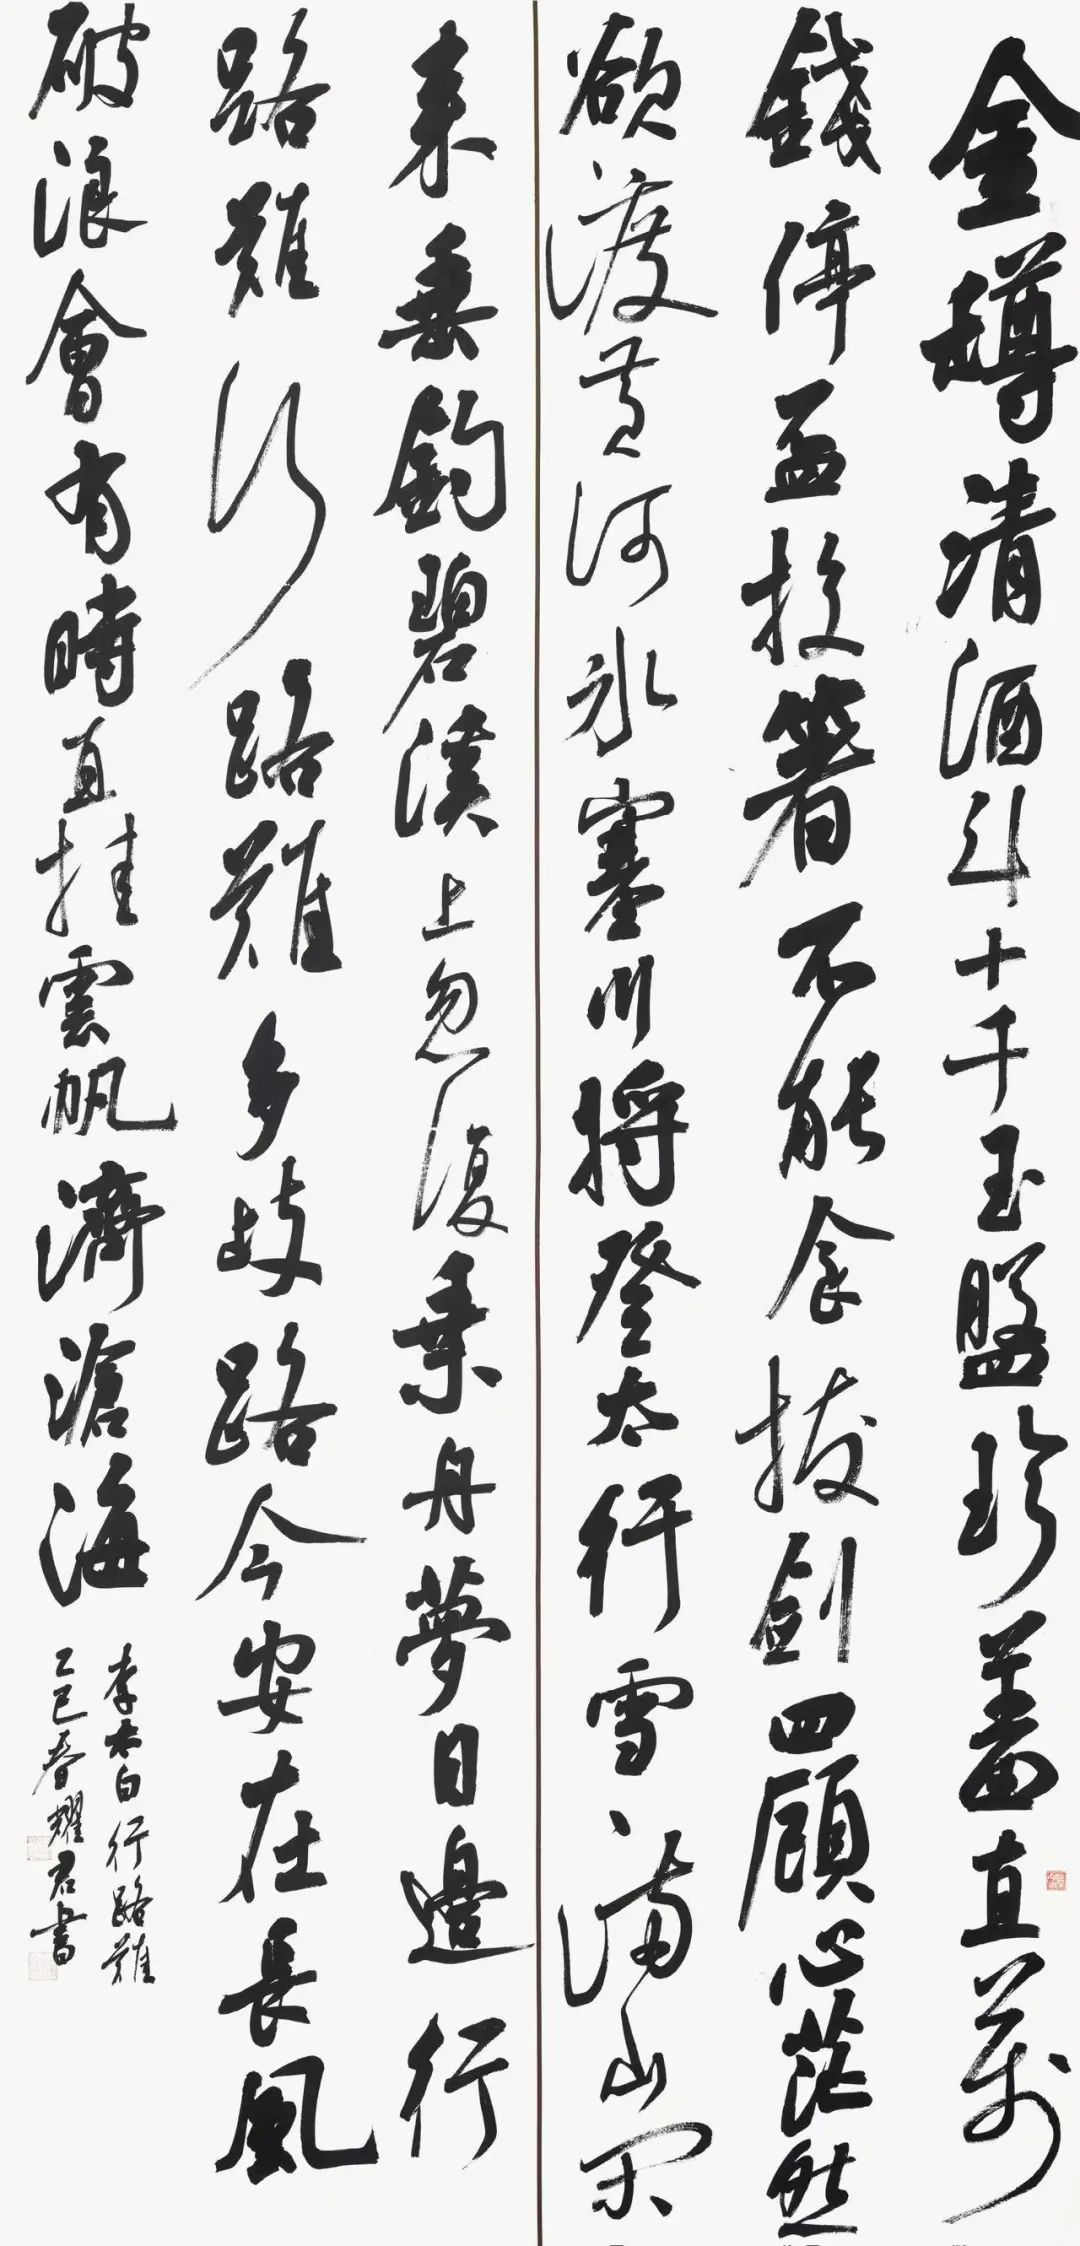 金樽清酒斗十千玉盤珍羞直萬
錢停盃投箸不能食拔劍四顧心茫然
欲渡黄河冰塞川將登太行雪滿山閑
来垂釣碧溪上忽復乗舟夢日邊行
路難行路難多歧路今安在長風
破浪會有時直挂雲帆濟滄海
李太白行路難
乙巳春耀君書